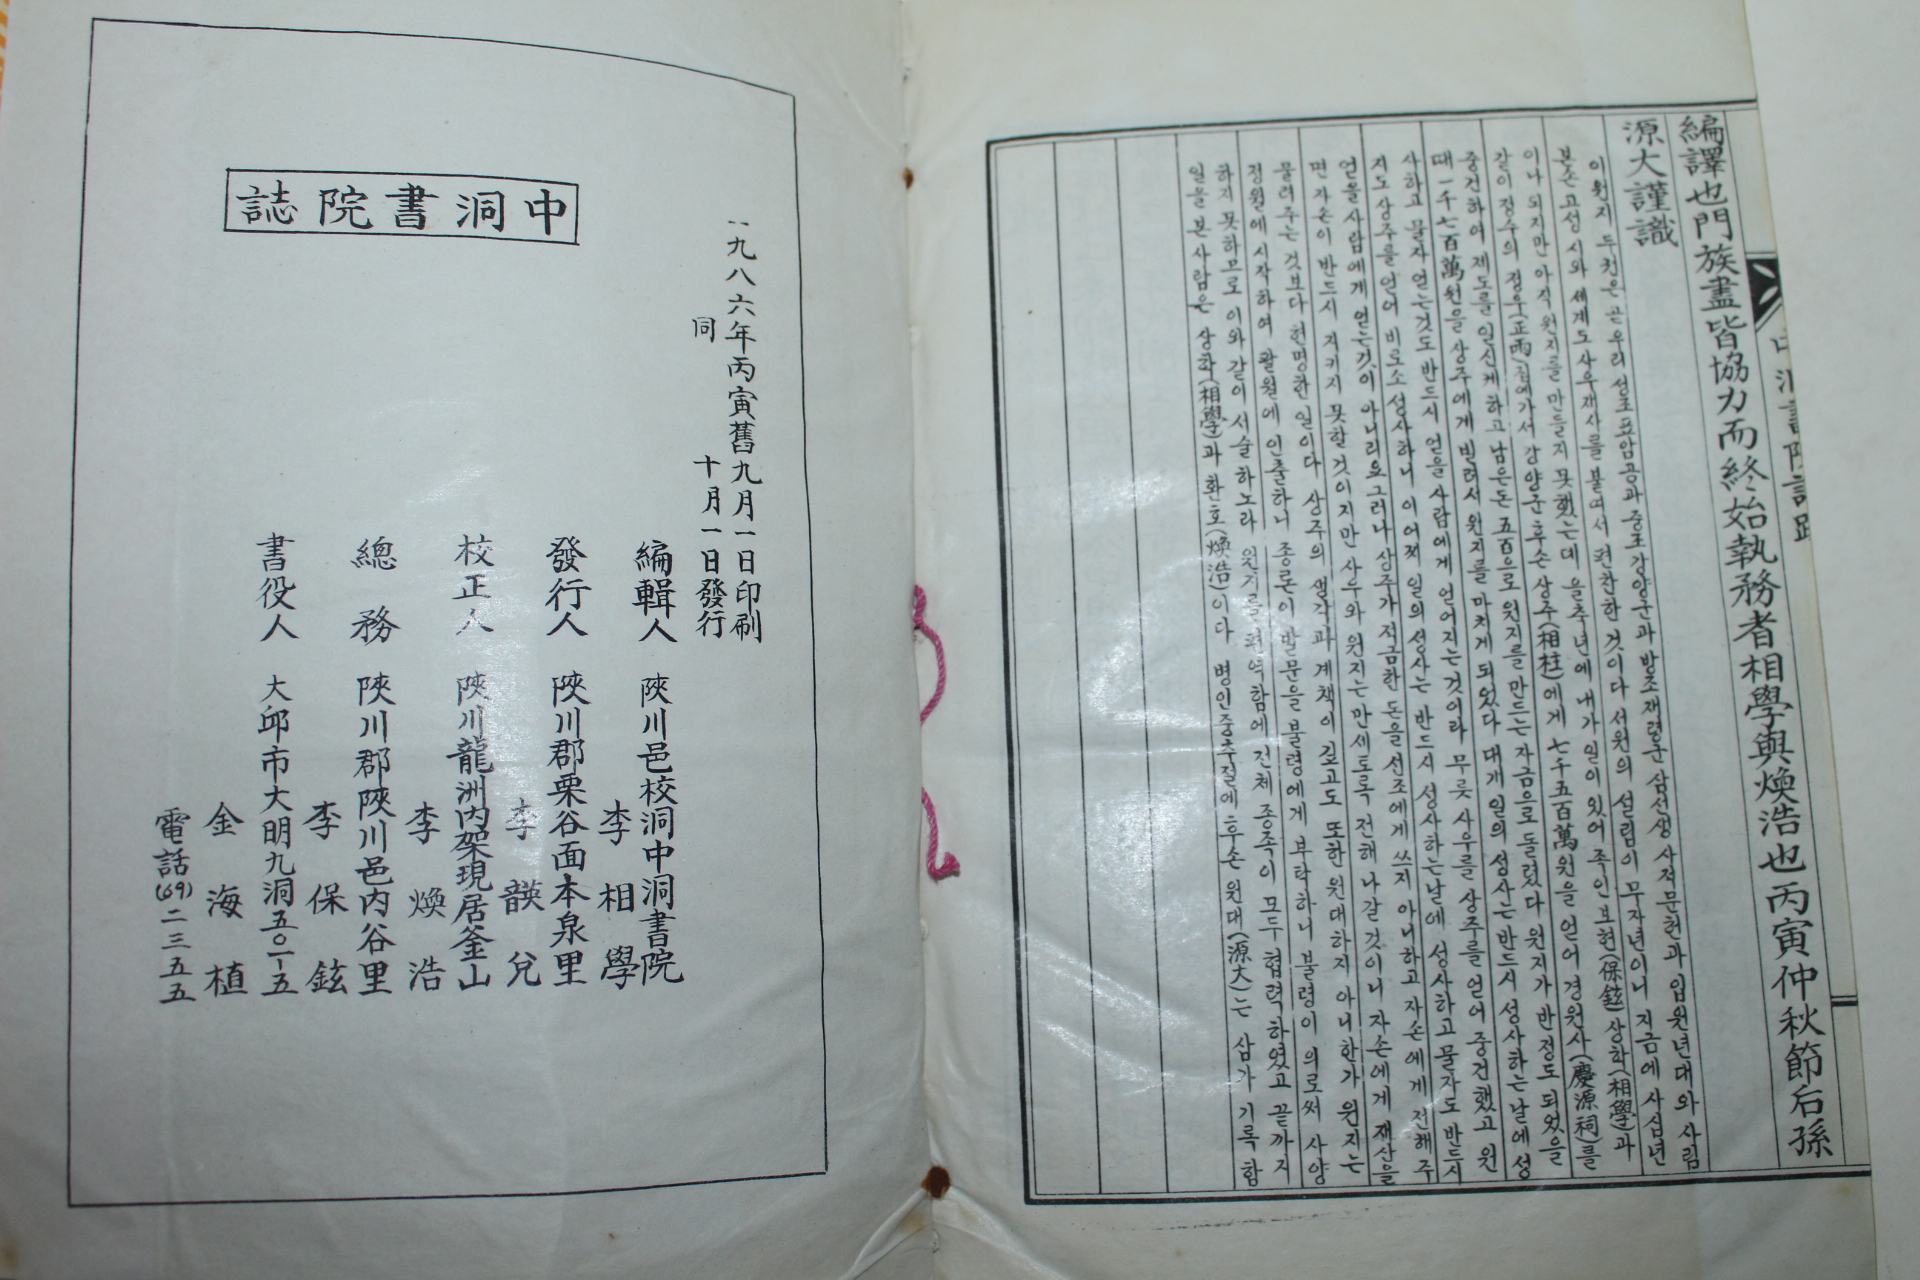 編譯也門族盡皆協力而終始執務者相學與煥浩也丙寅仲秋節后孫
源大謹識
이 원지 두권은 곧 우리 성조표암공과 중조강양군과 방조재령군 삼선생 사적문헌과 입원년대와 사림
본손 고성시와 세계도 사우재사를 붙여서 편찬한 것이다 서원의 설립이 무자년이니 지금에 사십년
이나 되지만 아직 원지를 만들지 못했는데 을축년에 내가 일이 있어 족인 보현(保鉉) 상학(相學)과
같이 정수의 정우(正雨)집에 가서 강양군 후손 상주(相柱)에게 七千五百萬원을 얻어 경원사(慶源祠)를
중건하여 제도를 일신케 하고 남은돈 五百으로 원지를 만드는 자금으로 돌렸다 원지가 반정도 되었을
때 一千七百萬원을 상주에게 빌려서 원지를 마치게 되었다 대개 일의 성사는 반드시 성사하는 날에 성
사하고 물자 얻는것도 반드시 얻을 사람에게 얻어지는 것이라 무릇 사우를 상주를 얻어 중건했고 원
지도 상주를 얻어 비로소 성사하니 이어찌 일의 성사는 반드시 성사하는날에 성사하고 물자도 반드시
얻을 사람에게 얻는것이 아니리요 그러나 상주가 적금한 돈을 선조에게 쓰지 아니하고 자손에게 전해주
면 자손이 반드시 지키지 못할 것이지만 사우와 원지는 만세토록 전해 나갈것이니 자손에게 재산을
물려주는 것보다 현명한 일이다 상주의 생각과 계책이 깊고도 또한 원대하지 아니한가 원지는
정원에 시작하여 팔원에 인출하니 종론이 발문을 불령에게 부탁하니 불령이 의로써 사양
하지 못하므로 이와 같이 서술하노라 원지를 편역함에 전체 종족이 모두 협력하였고 끝까지
일을 본 사람은 상학(相學)과 환호(煥浩)이다 병인중추절에 후손 원대(源大)는 삼가 기록함
一九八六年丙寅舊九月一日印刷
同 十月一日發行
編輯人 陜川邑校洞中洞書院
李相學
發行人 陜川郡栗谷面本泉里
李
兌
校正人 陜川龍洲內架現居釜山
李煥浩
總務 陜川郡陜川邑內谷里
李保鉉
書役人 大邱市大明九洞五〇一-五
金海植
電話(69)二三五五
中洞書院誌